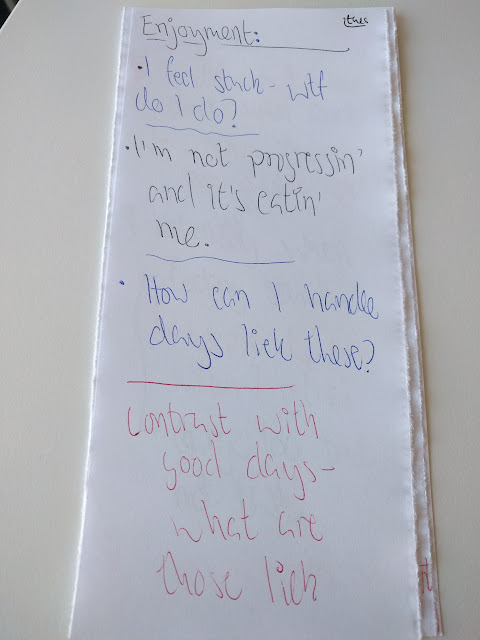 Enjoyment:
• I feel stuck - wtf
do I do?
• I'm not progressin'
and it's eatin'
me.
• How can I handle
days liek these?
Contrast with
good days -
what are
those liek